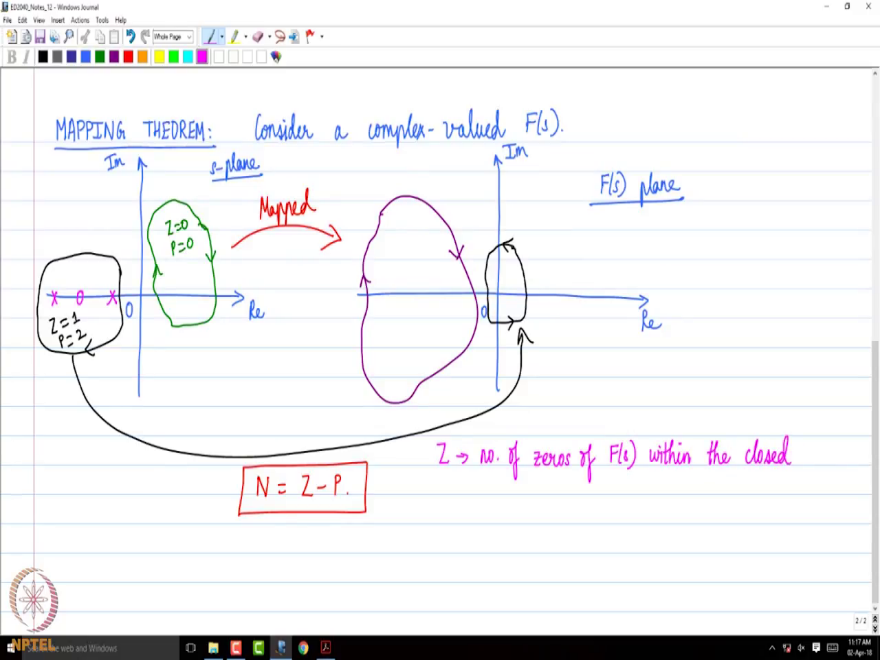 ED2040_Notes_12 - Windows Journal
File Edit View Insert Actions Tools Help
Whole Page
B I
MAPPING THEOREM: Consider a complex-valued F(s).
Im s-plane Im
F(s) plane
Mapped
Z=0
P=0
0 Re 0 Re
Z=1
P=2
Z → no. of zeros of F(s) within the closed
N = Z - P.
2 / 2
NPTEL
the web and Windows
11:17 AM
02-Apr-18